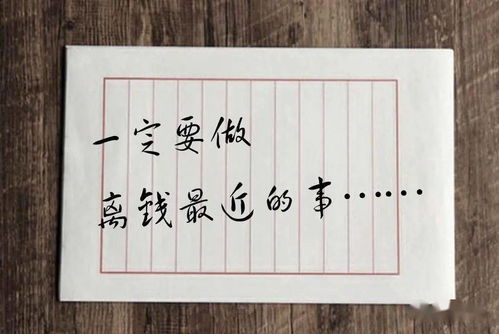 一定要做
离錢最近的事……